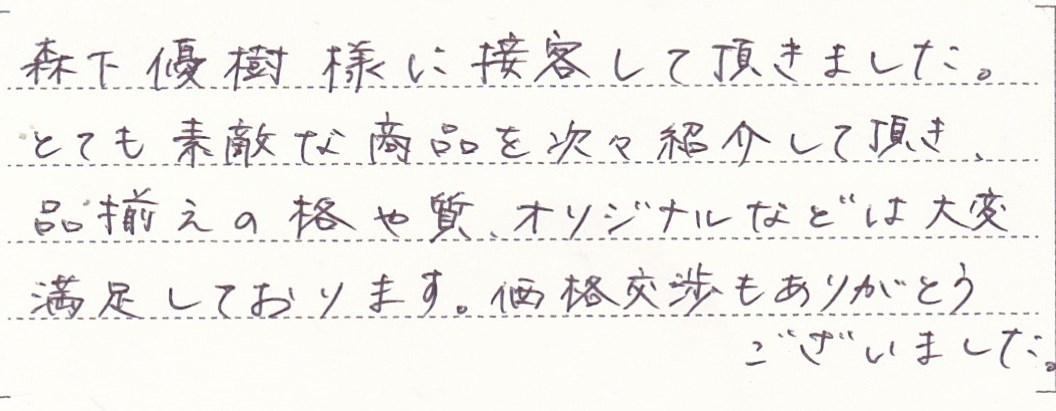 森下優樹様に接客して頂きました。
とても素敵な商品を次々紹介して頂き、
品揃えの格や質、オリジナルなどは大変
満足しております。価格交渉もありがとう
ございました。